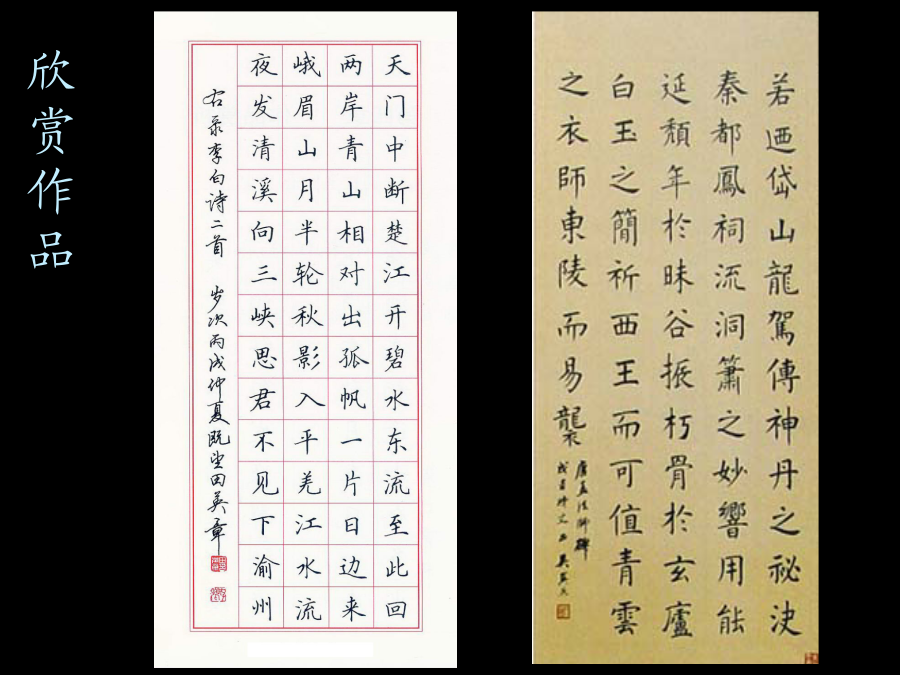 欣赏作品
天门中断楚江开碧水东流至此回
两岸青山相对出孤帆一片日边来
峨眉山月半轮秋影入平羌江水流
夜发清溪向三峡思君不见下渝州
右录李白诗二首 岁次丙戌仲夏既望田英章
若迺岱山龍駕傳神丹之祕决
秦都鳳祠流洞簫之妙響用能
延頹年於昧谷振朽骨於玄廬
白玉之簡祈西王而可值青雲
之衣師東陵而易襲
唐孟法師碑